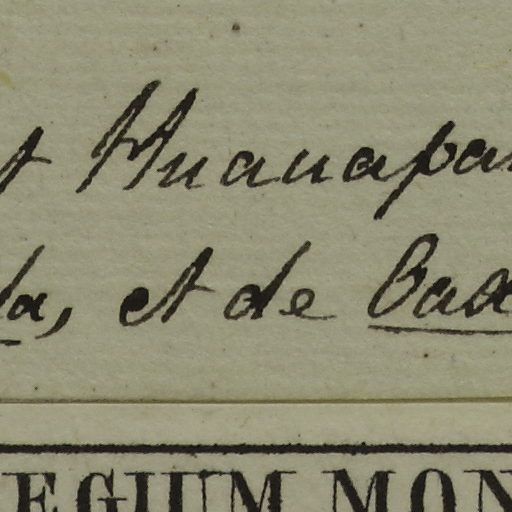 et Huanapa
la, et de Oax
EGIUM MON